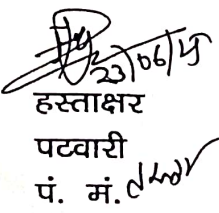 23/06/25
हस्ताक्षर
पटवारी
पं. मं.